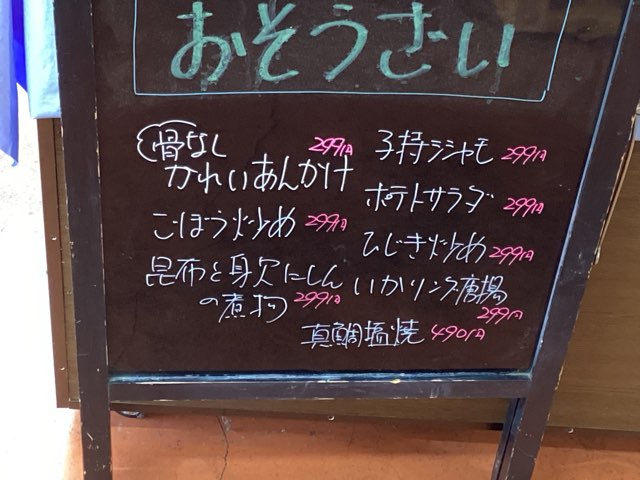 おそうざい
骨なし
かれいあんかけ 299円
ごぼう炒め 299円
昆布と身欠にしん
の煮物 299円
子持シシャモ 299円
ポテトサラダ 299円
ひじき炒め 299円
いかリング唐揚
299円
真鯛塩焼 490円